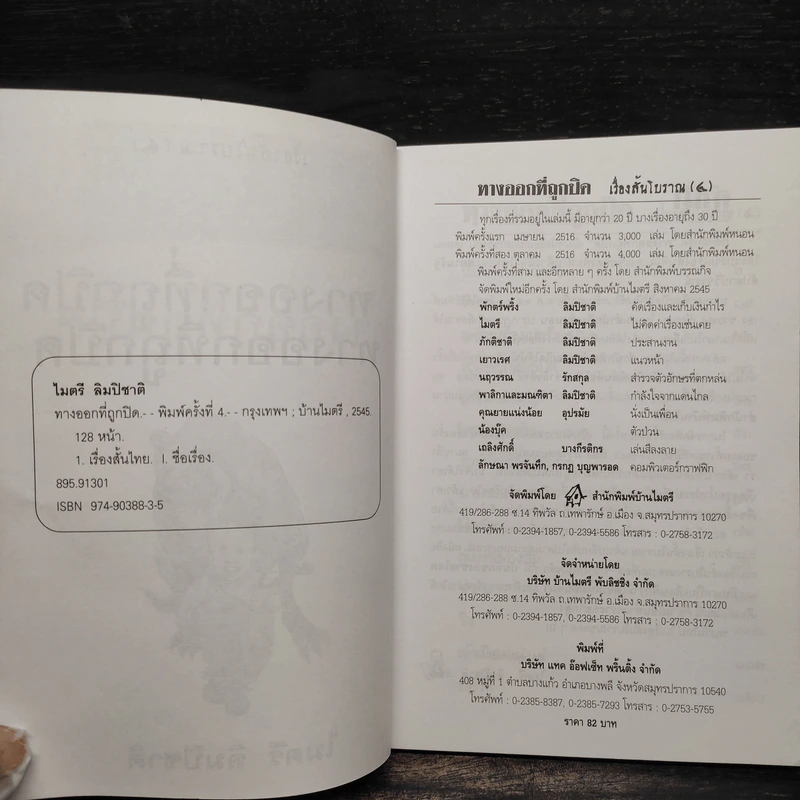 ไมตรี ลิมปิชาติ
ทางออกที่ถูกปิด.- - พิมพ์ครั้งที่ 4.- - กรุงเทพฯ ; บ้านไมตรี , 2545.
128 หน้า.
1. เรื่องสั้นไทย. I. ชื่อเรื่อง.
895.91301
ISBN 974-90388-3-5
ทางออกที่ถูกปิด เรื่องสั้นโบราณ (๔)
ทุกเรื่องที่รวมอยู่ในเล่มนี้ มีอายุกว่า 20 ปี บางเรื่องอายุถึง 30 ปี
พิมพ์ครั้งแรก เมษายน 2516 จำนวน 3,000 เล่ม โดยสำนักพิมพ์หนอน
พิมพ์ครั้งที่สอง ตุลาคม 2516 จำนวน 4,000 เล่ม โดยสำนักพิมพ์หนอน
พิมพ์ครั้งที่สาม และอีกหลาย ๆ ครั้ง โดย สำนักพิมพ์บรรณกิจ
จัดพิมพ์ใหม่อีกครั้ง โดย สำนักพิมพ์บ้านไมตรี สิงหาคม 2545
พักตร์พริ้ง ลิมปิชาติ คัดเรื่องและเก็บเงินกำไร
ไมตรี ลิมปิชาติ ไม่คิดค่าเรื่องเช่นเคย
ภักติชาติ ลิมปิชาติ ประสานงาน
เยาวเรศ ลิมปิชาติ แนวหน้า
นฤวรรณ รักสกุล สำรวจตัวอักษรที่ตกหล่น
พาลิกาและมณฑิตา ลิมปิชาติ กำลังใจจากแดนไกล
คุณยายแน่งน้อย อุปรมัย นั่งเป็นเพื่อน
น้องบุ๊ค ตัวป่วน
เถลิงศักดิ์ บางกีรติกร เล่นสีลงลาย
ลักษณา พรจันทึก, กรกฎ บุญพารอด คอมพิวเตอร์กราฟฟิก
จัดพิมพ์โดย สำนักพิมพ์บ้านไมตรี
419/286-288 ซ.14 ทิพวัล ถ.เทพารักษ์ อ.เมือง จ.สมุทรปราการ 10270
โทรศัพท์ : 0-2394-1857, 0-2394-5586 โทรสาร : 0-2758-3172
จัดจำหน่ายโดย
บริษัท บ้านไมตรี พับลิชชิ่ง จำกัด
419/286-288 ซ.14 ทิพวัล ถ.เทพารักษ์ อ.เมือง จ.สมุทรปราการ 10270
โทรศัพท์ : 0-2394-1857, 0-2394-5586 โทรสาร : 0-2758-3172
พิมพ์ที่
บริษัท แทค อ๊อฟเซ็ท พริ้นติ้ง จำกัด
408 หมู่ที่ 1 ตำบลบางแก้ว อำเภอบางพลี จังหวัดสมุทรปราการ 10540
โทรศัพท์ : 0-2385-8387, 0-2385-7293 โทรสาร : 0-2753-5755
ราคา 82 บาท